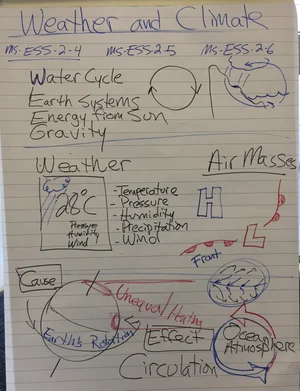 Weather and Climate
MS-ESS-2-4 MS-ESS-2-5 MS-ESS-2-6
Water Cycle
Earth Systems
Energy from Sun
Gravity
Weather
Air Masses
28°C
Pressure
Humidity
Wind
- Temperature
- Pressure
- Humidity
- Precipitation
- Wind
H
L
Front
Cause
Unequal Heating
Earth's Rotation
Effect
Ocean
Atmosphere
Circulation